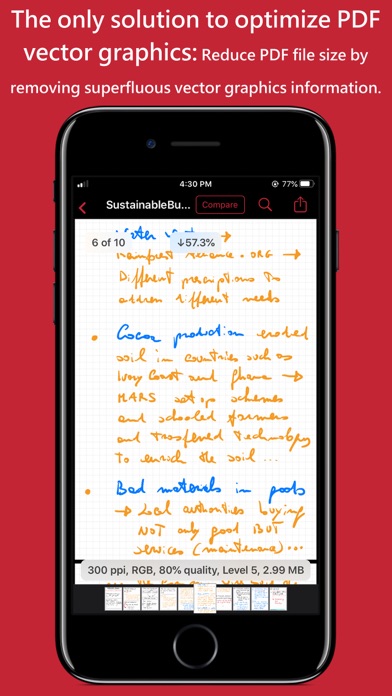 The only solution to optimize PDF
vector graphics: Reduce PDF file size by
removing superfluous vector graphics information.
4:30 PM
77%
SustainableBu...
Compare
6 of 10
↓57.3%
→
Rainforest Alliance.ORG →
Different prescriptions to
address different needs
• Cocoa production eroded
soil in countries such as
Ivory Coast and Ghana →
MARS set up schemes
and schooled farmers
and trasfered technology
to enrich the soil ...
• Bad materials in pools
→ Local authorities buying
NOT only good BUT
services (maintenance) ...
300 ppi, RGB, 80% quality, Level 5, 2.99 MB